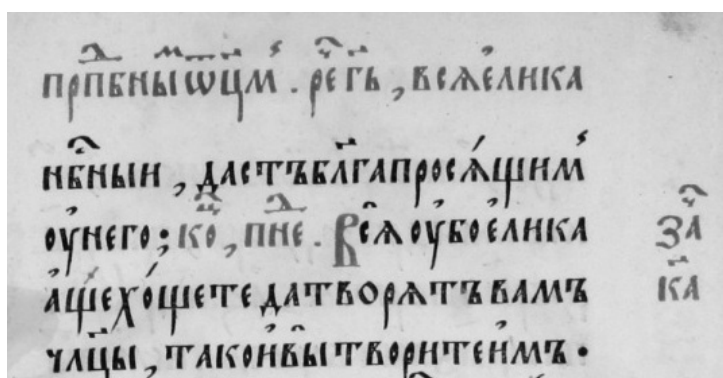 прпⷣбныⷨѡцⷨм҆ . реⷱ҇гь , всѧ є҆лика
нб҃ныи , дастъ бл҃га просѧ́щимъ
ѹ҆ него ; коⷰ҇ , пⷩ҇еⷣ . Всѧ̑ ѹ҆бо є҆лика заⷱ҇
а҆ще хо́щете да творѧтъ вамъ к҃а
чл҃цы , тако и҆ вы̀ творите и҆мъ .